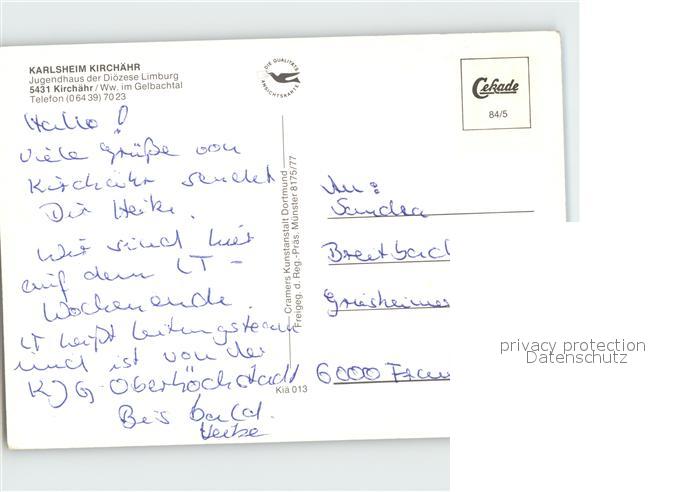 KARLSHEIM KIRCHÄHR
Jugendhaus der Diözese Limburg
5431 Kirchähr/Ww. im Gelbachtal
Telefon (06439) 7023
DIE QUALITÄTS
ANSICHTSKARTE
Cekade
84/5
Hallo!
Viele Grüße von
Kirchähr sendet
Dir Heike.
Wir sind hier
auf dem LT-
Wochenende.
LT heißt Leitungsteam
und ist von der
KJG-Oberhöchstadt
Bis bald.
Heike
Cramers Kunstanstalt Dortmund
Freigeg. d. Reg.-Präs. Münster 8175/77
Kiä 013
An:
Sandra
Breitbach
Griesheimer
6000 Fran
privacy protection
Datenschutz